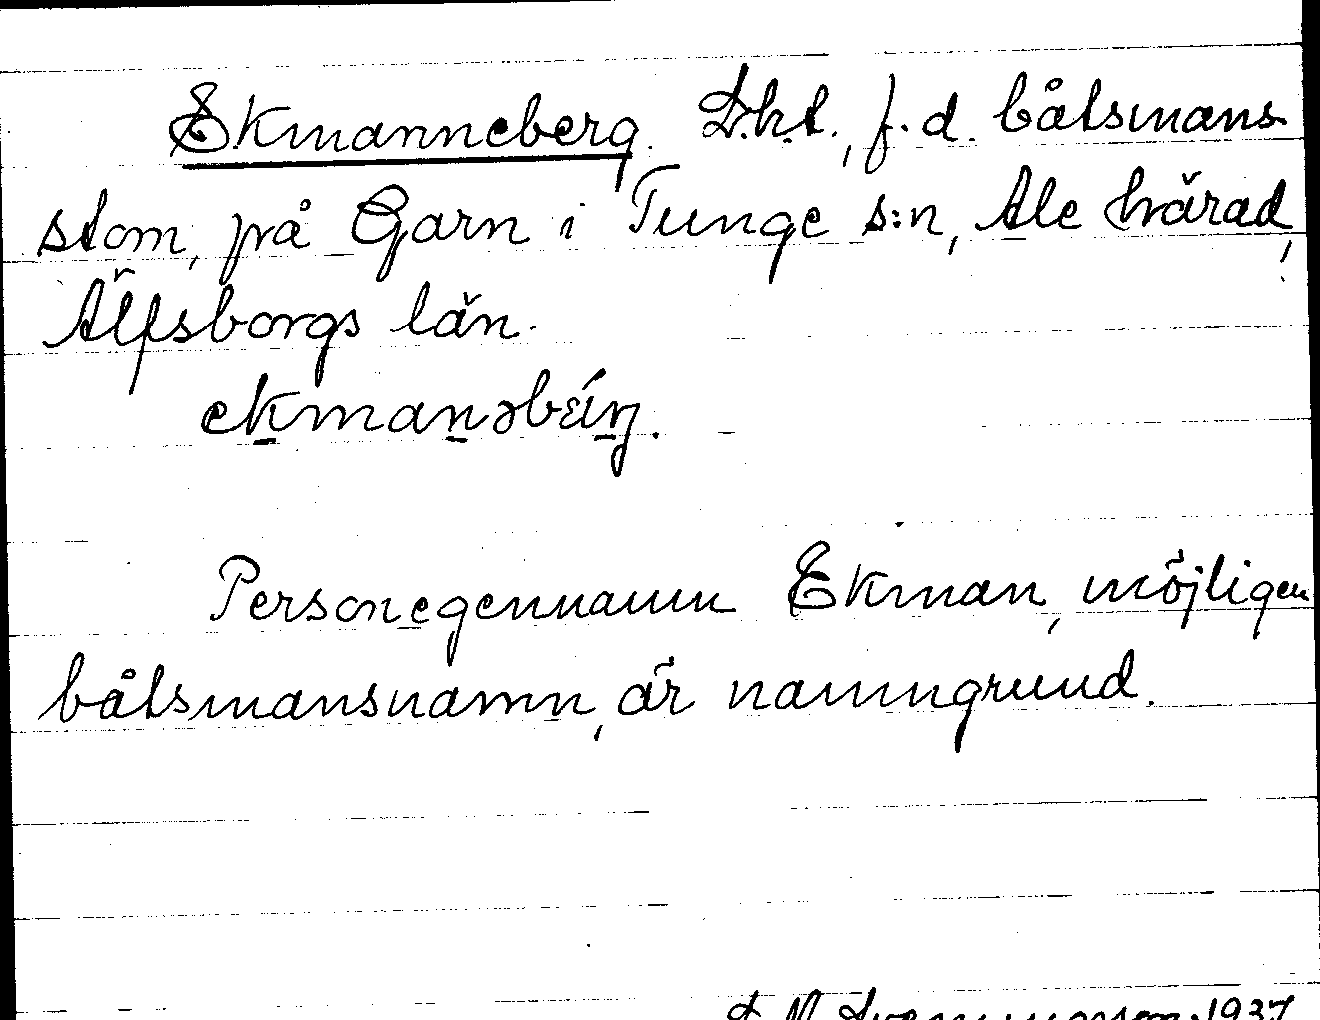 Ekmanneberg. L:ht., f.d. båtsmans-
stom, på Garn i Tunge s:n, Ale härad,
Älfsborgs län.
Personegennamn Ekman, möjligen
båtsmansnamn, är namngrund.
1937